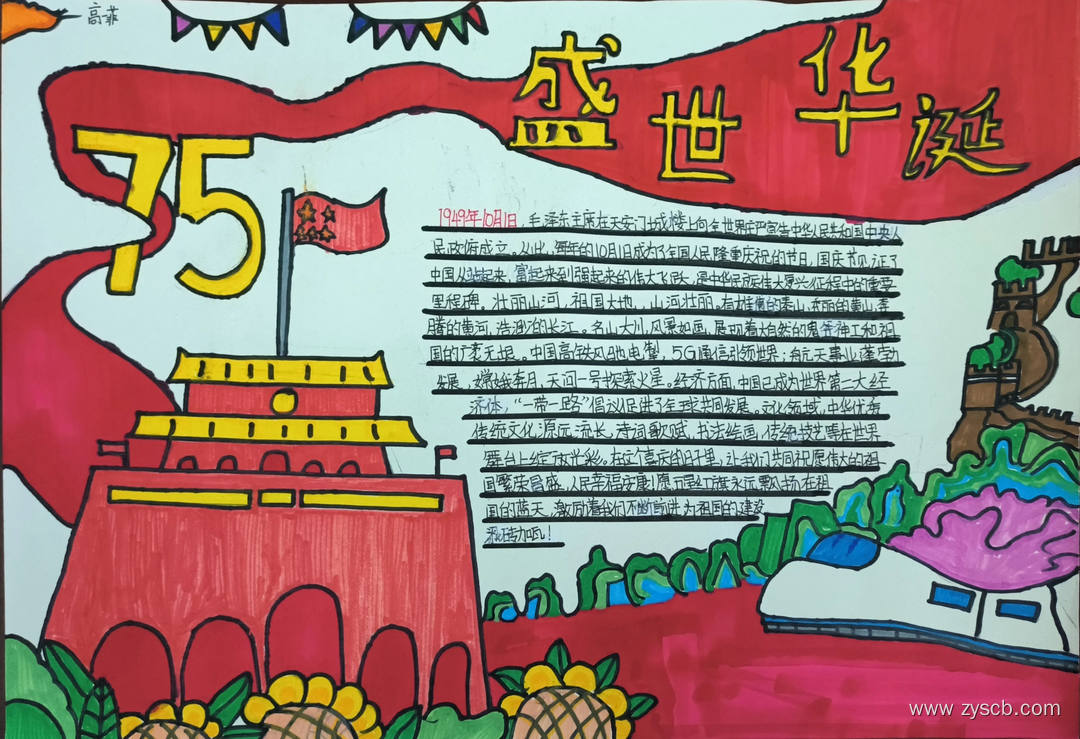 高菲
盛世华诞
75
1949年10月1日,毛泽东主席在天安门城楼上向全世界庄严宣告中华人民共和国中央人
民政府成立。从此,每年的10月1日成为了全国人民隆重庆祝的节日,国庆节见证了
中国从站起来,富起来到强起来的伟大飞跃,是中华民族伟大复兴征程中的重要
里程碑。壮丽山河,祖国大地,山河壮丽。有雄伟的泰山,秀丽的黄山,奔
腾的黄河,浩渺的长江。名山大川,风景如画,展现着大自然的鬼斧神工和祖
国的广袤无垠。中国高铁风驰电掣,5G通信引领世界;航天事业蓬勃
发展,嫦娥奔月,天问一号探索火星。经济方面,中国已成为世界第二大经
济体,“一带一路”倡议促进了全球共同发展。文化领域,中华优秀
传统文化源远流长,诗词歌赋,书法绘画,传统技艺等在世界
舞台上绽放光彩。在这个喜庆的日子里,让我们共同祝愿伟大的祖
国繁荣昌盛,人民幸福安康!愿五星红旗永远飘扬在祖
国的蓝天,激励着我们不断前进为祖国的建设
添砖加瓦!
www.zyscb.com